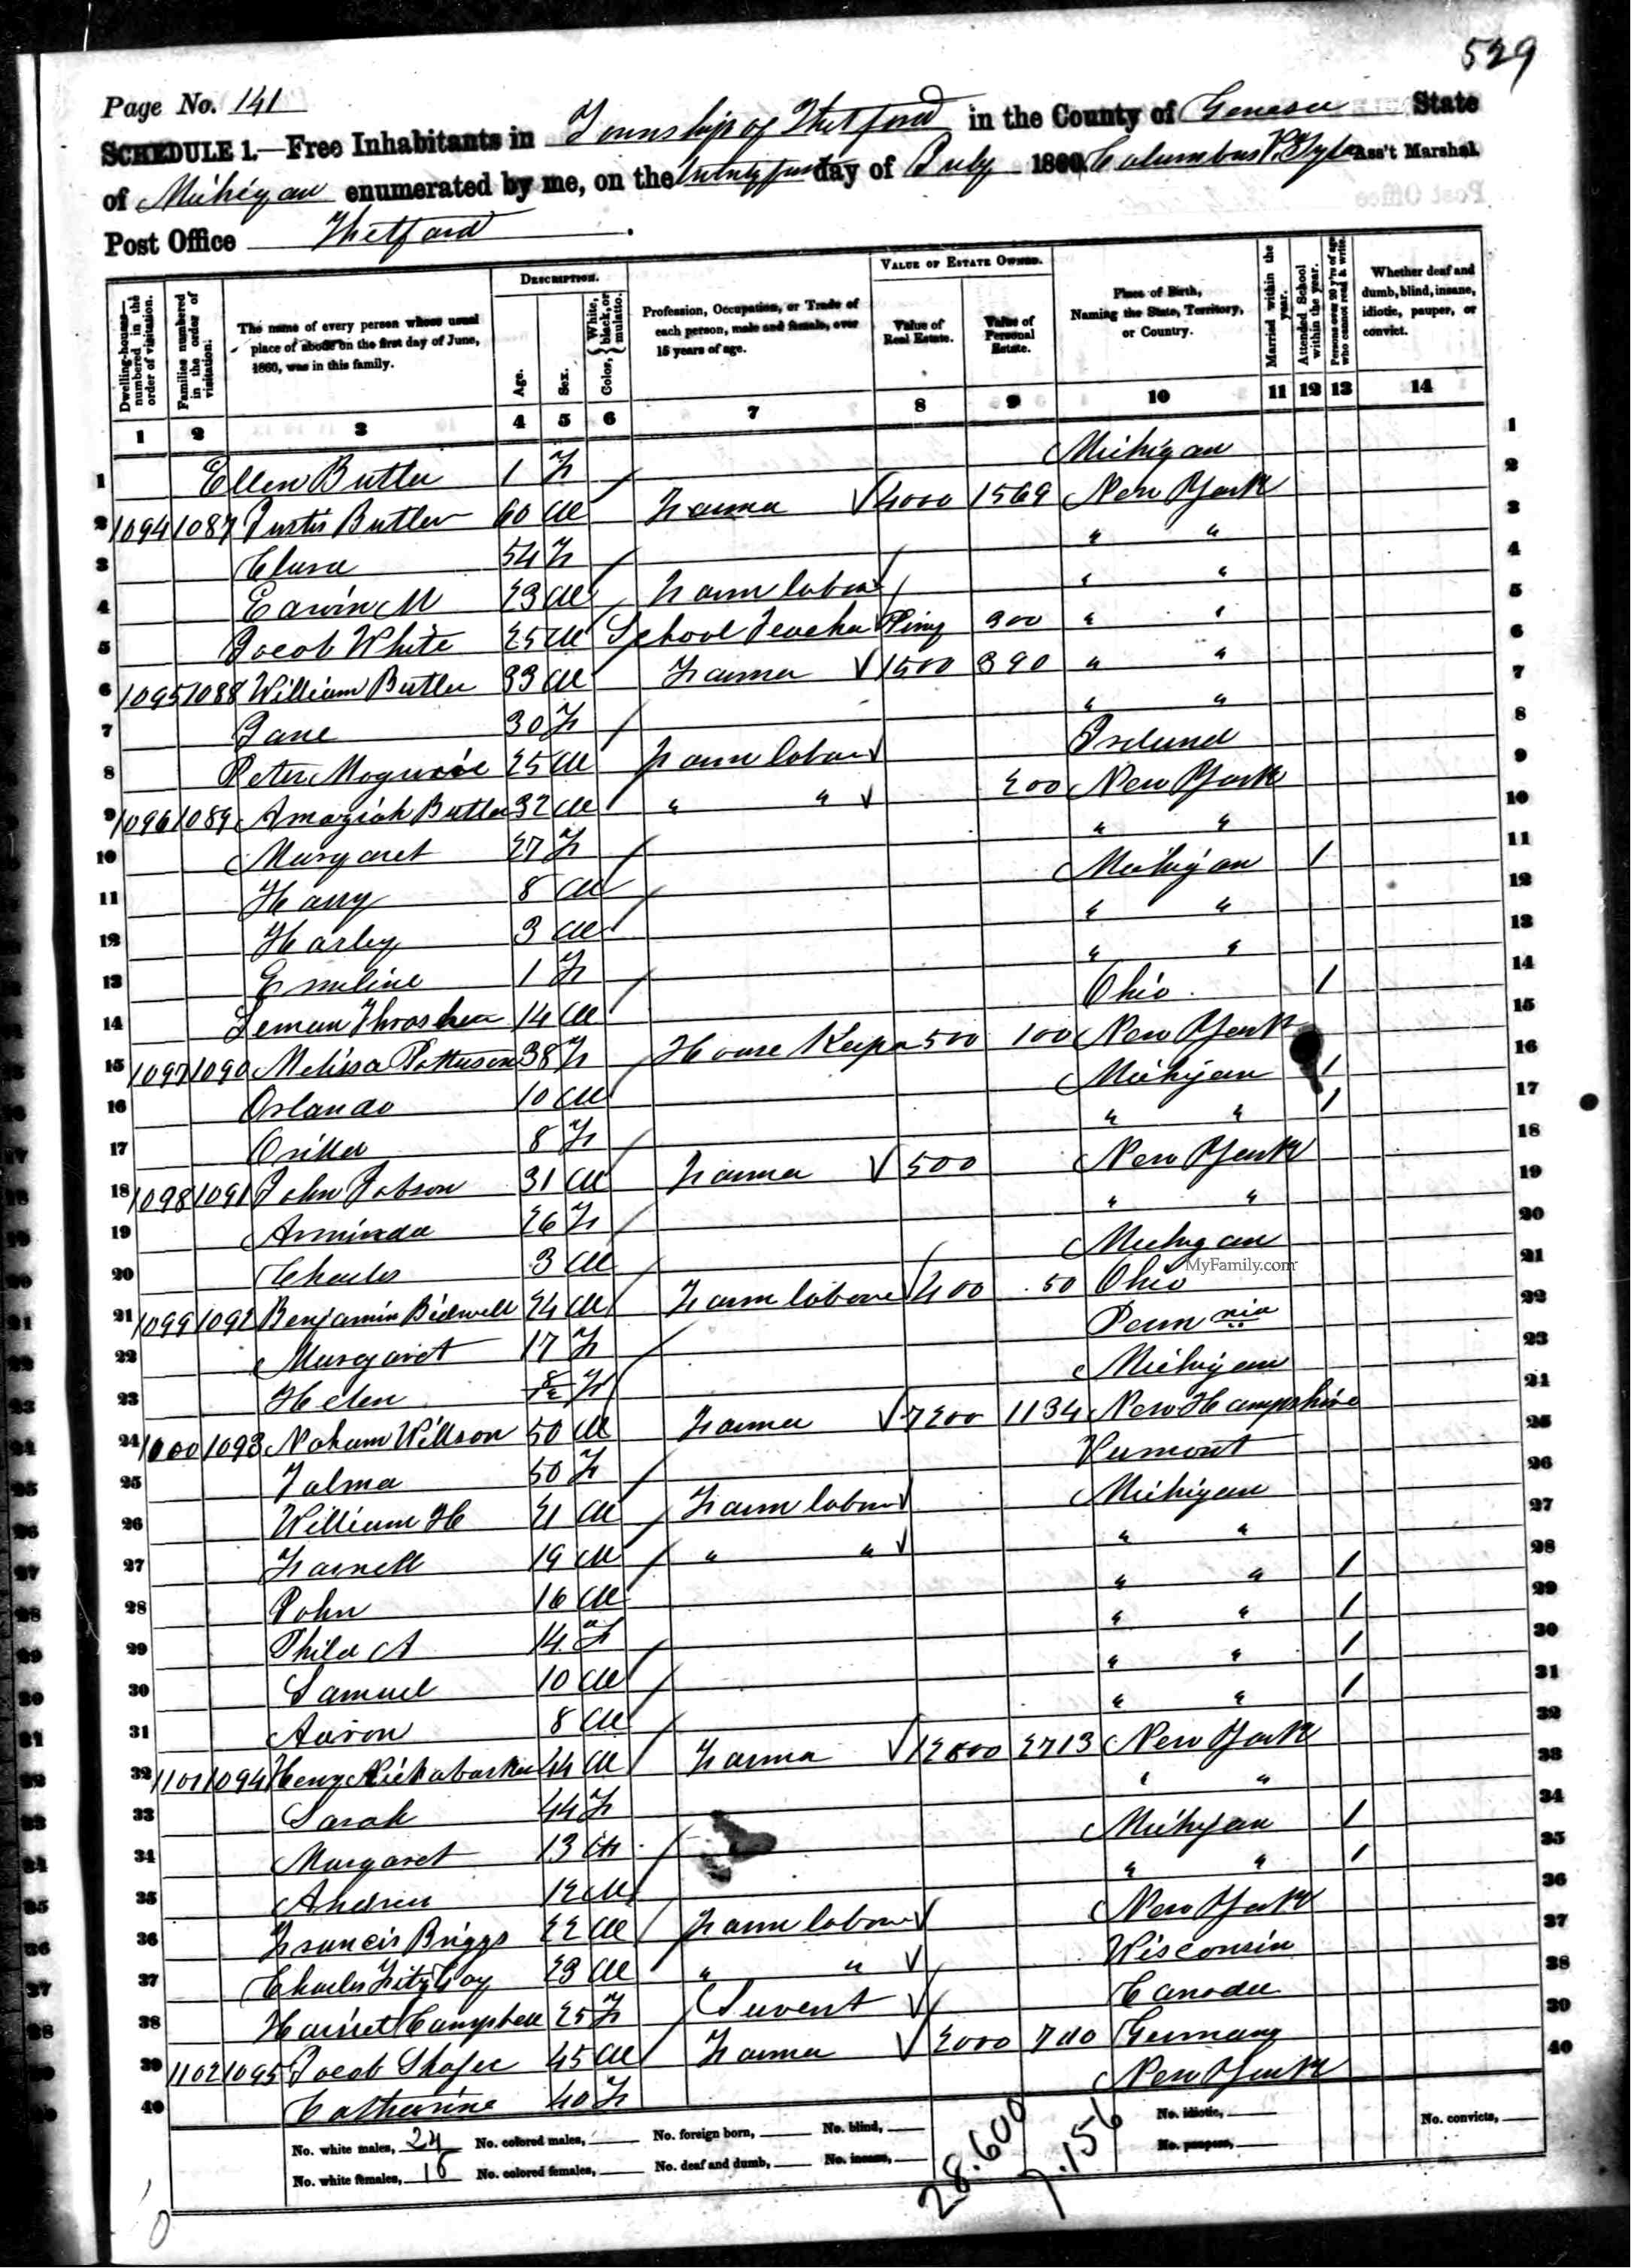 529
Page No. 141
SCHEDULE 1.—Free Inhabitants in Township of Thetford in the County of Genesee State
of Michigan enumerated by me, on the day of July 1860. Columbus V. Tyler Ass't Marshal.
Post Office Thetford.
Dwelling-houses—numbered in the order of visitation.
Families numbered in the order of visitation.
The name of every person whose usual place of abode on the first day of June, 1860, was in this family.
DESCRIPTION.
Age.
Sex.
Color, { White, black, or mulatto.
Profession, Occupation, or Trade of each person, male and female, over 15 years of age.
VALUE OF ESTATE OWNED.
Value of Real Estate.
Value of Personal Estate.
Place of Birth, Naming the State, Territory, or Country.
Married within the year.
Attended School within the year.
Persons over 20 y'rs of age who cannot read & write.
Whether deaf and dumb, blind, insane, idiotic, pauper, or convict.
1 2 3 4 5 6 7 8 9 10 11 12 13 14
1 Ellen Butler 1 F Michigan 1
2 1094 1087 Justis Butler 60 M Farmer 4000 1569 New York 2
3 Clara 54 F " " 3
4 Edwin M 23 M Farm labor " " 4
5 Jacob White 25 M School Teacher 300 " " 5
6 1095 1088 William Butler 33 M Farmer 1500 390 " " 6
7 Jane 30 F " " 7
8 Peter Moguire 25 M Farm labor Ireland 8
9 1096 1089 Amaziah Butler 32 M " " 200 New York 9
10 Margaret 27 F " " 10
11 Harry 8 M Michigan / 11
12 Harley 3 M " " 12
13 Emeline 1 F " " 13
14 Leman Thrasher 14 M Ohio / 14
15 1097 1090 Melissa Patterson 38 F House Keeper 500 100 New York 15
16 Orlando 10 M Michigan / 16
17 Orilla 8 F " " / 17
18 1098 1091 John Jobson 31 M Farmer 500 New York 18
19 Arminda 26 F " " 19
20 Charles 3 M Michigan 20
MyFamily.com
21 1099 1092 Benjamin Bidwell 24 M Farm laborer 400 50 Ohio 21
22 Margaret 17 F Penn nia 22
23 Helen 8/12 F Michigan 23
24 1000 1093 Nahum Willson 50 M Farmer 7200 1134 New Hampshire 24
25 Talma 50 F Vermont 25
26 William H 21 M Farm labor Michigan 26
27 19 M " " " " 27
28 John 16 M " " / 28
29 Phila A 14 F " " / 29
30 Samuel 10 M " " / 30
31 Aaron 8 M " " / 31
32 1101 1094 Henry 44 M Farmer 12800 2713 New York 32
33 Sarah 44 F " " 33
34 Margaret 13 Michigan / 34
35 Andrew 12 M " " / 35
36 Francis Briggs 22 M Farm labor New York 36
37 Charles 23 M " " Wisconsin 37
38 Harriet Campbell 25 F Servent Canada 38
39 1102 1095 Jacob Shafer 45 M Farmer 2000 700 Germany 39
40 Catherine 40 F New York 40
No. white males, 24 No. colored males, No. foreign born, No. blind, No. idiotic, No. convicts,
No. white females, 16 No. colored females, No. deaf and dumb, No. insane, No. paupers,
28.600 7.156